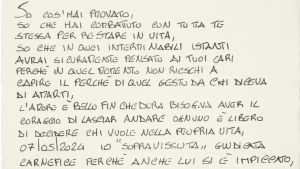 So cos'hai provato,
so che hai combattuto con tutta te
stessa per restare in vita,
so che in quei interminabili istanti
avrai sicuramente pensato ai tuoi cari
perché in quel momento non rieschi a
capire il perché di quel gesto da chi diceva
di amarti,
l'amore è bello finché dura bisogna aver il
coraggio di lasciar andare ognuno è libero
di decidere chi vuole nella propria vita,
07/05/2024 io "sopravvissuta" giudicata
carnefice perché anche lui si è impiccato,